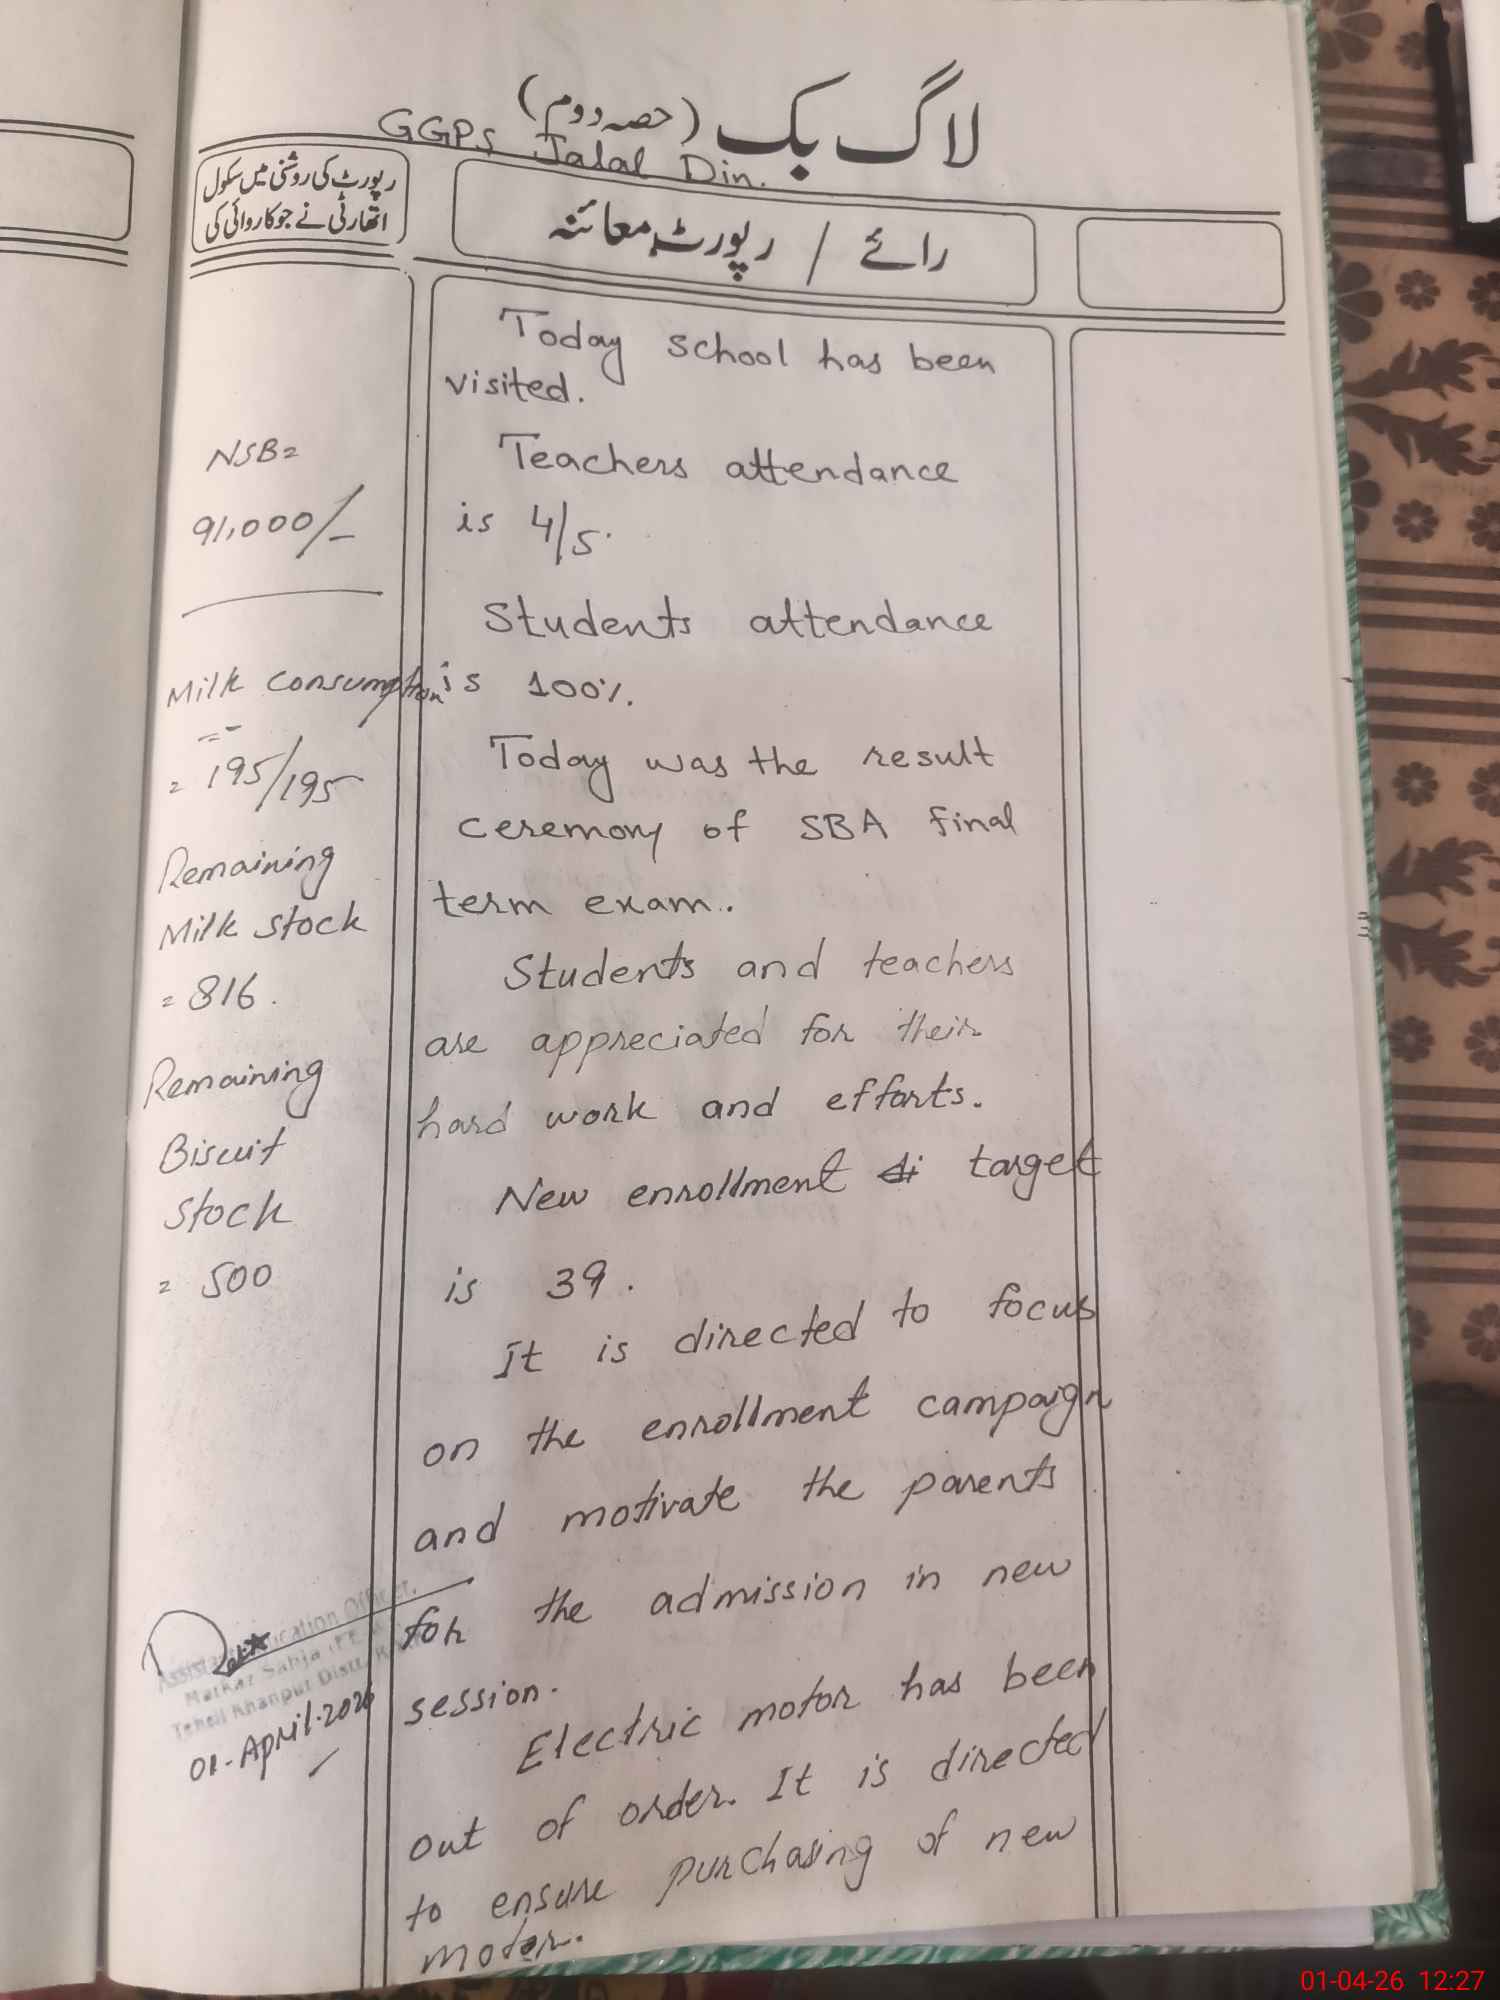 لاگ بک (حصہ دوم)
GGPS Jalal Din.
رپورٹ کی روشنی میں سکول
اتھارٹی نے جو کاروائی کی
رائے / رپورٹ معائنہ
Today school has been
visited.
Teachers attendance
is 4/5.
Students attendance
is 100%.
Today was the result
ceremony of SBA final
term exam.
Students and teachers
are appreciated for their
hard work and efforts.
New enrollment target
is 39.
It is directed to focus
on the enrollment campaign
and motivate the parents
for the admission in new
session.
Electric motor has been
out of order. It is directed
to ensure purchasing of new
motor.
NSB=
91,000/-
Milk consumption
= 195/195
Remaining
Milk stock
= 816.
Remaining
Biscuit
Stock
= 500
Assistant Education Officer,
Markaz Sahja
Tehsil Khanpur Distt.
01-April-2026
01-04-26 12:27